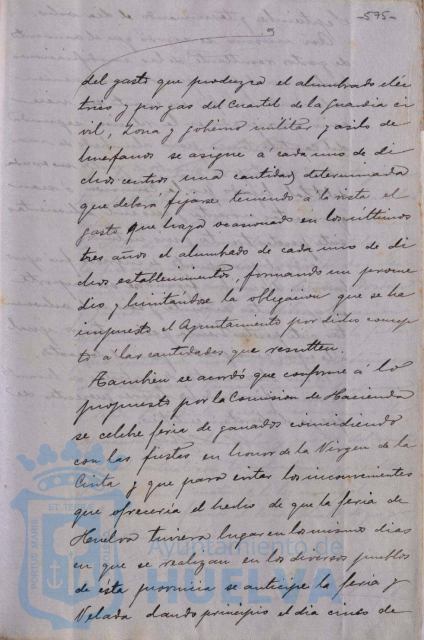 -575-
del gasto que produzca el alumbrado eléc
trico y por gas del Cuartel de la Guardia ci
vil, Zona y gobierno militar y asilo de
huérfanos se asigne á cada uno de di
chos centros una cantidad determinada
que debera fijarse teniendo á la vista el
gasto que haya ocasionado en los últimos
tres años el alumbrado de cada uno de di
chos establecimientos formando un prome
dio y limitandose la obligacion que se ha
impuesto el Ayuntamiento por dicho concep
to á las cantidades que resulten.
Tambien se acordó que conforme á lo
propuesto por la Comision de Hacienda
se celebre feria de ganados coincidiendo
con las fiestas en honor de la Virgen de la
Cinta y que para evitar los inconvenientes
que ofreceria el hecho de que la feria de
Huelva tuviera lugar en los mismo dias
en que se realizan en los diversos pueblos
de esta provincia se anticipe la feria y
Velada dando principio el dia cinco de
PORTUS MARIS
Ayuntamiento de
HUELVA